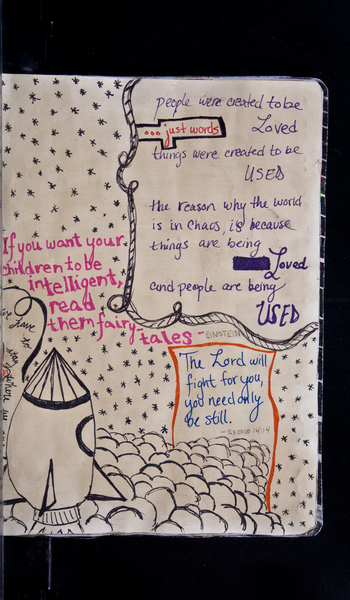 people were created to be
Loved
... just words
things were created to be
USED
the reason why the world
is in chaos, is because
things are being
Loved
and people are being
USED
If you want your
children to be
intelligent,
read
them fairy-
tales - EINSTEIN
The Lord will
fight for you,
you need only
be still.
- Exodo 14:14